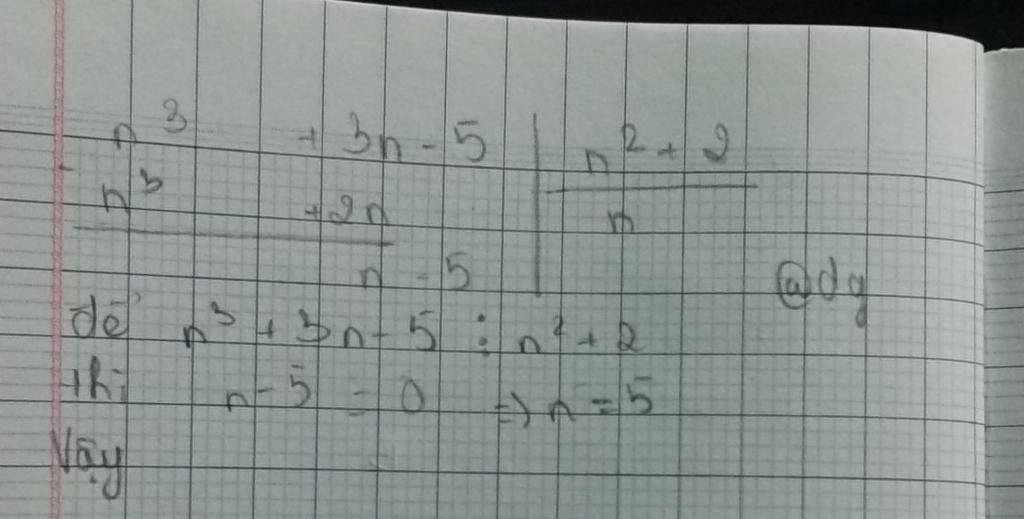 n³ + 3n - 5 | n² + 2
- n³ + 2n | n
n - 5
@dg
để n³ + 3n - 5 ⋮ n² + 2
thì n - 5 = 0 => n = 5
Vậy